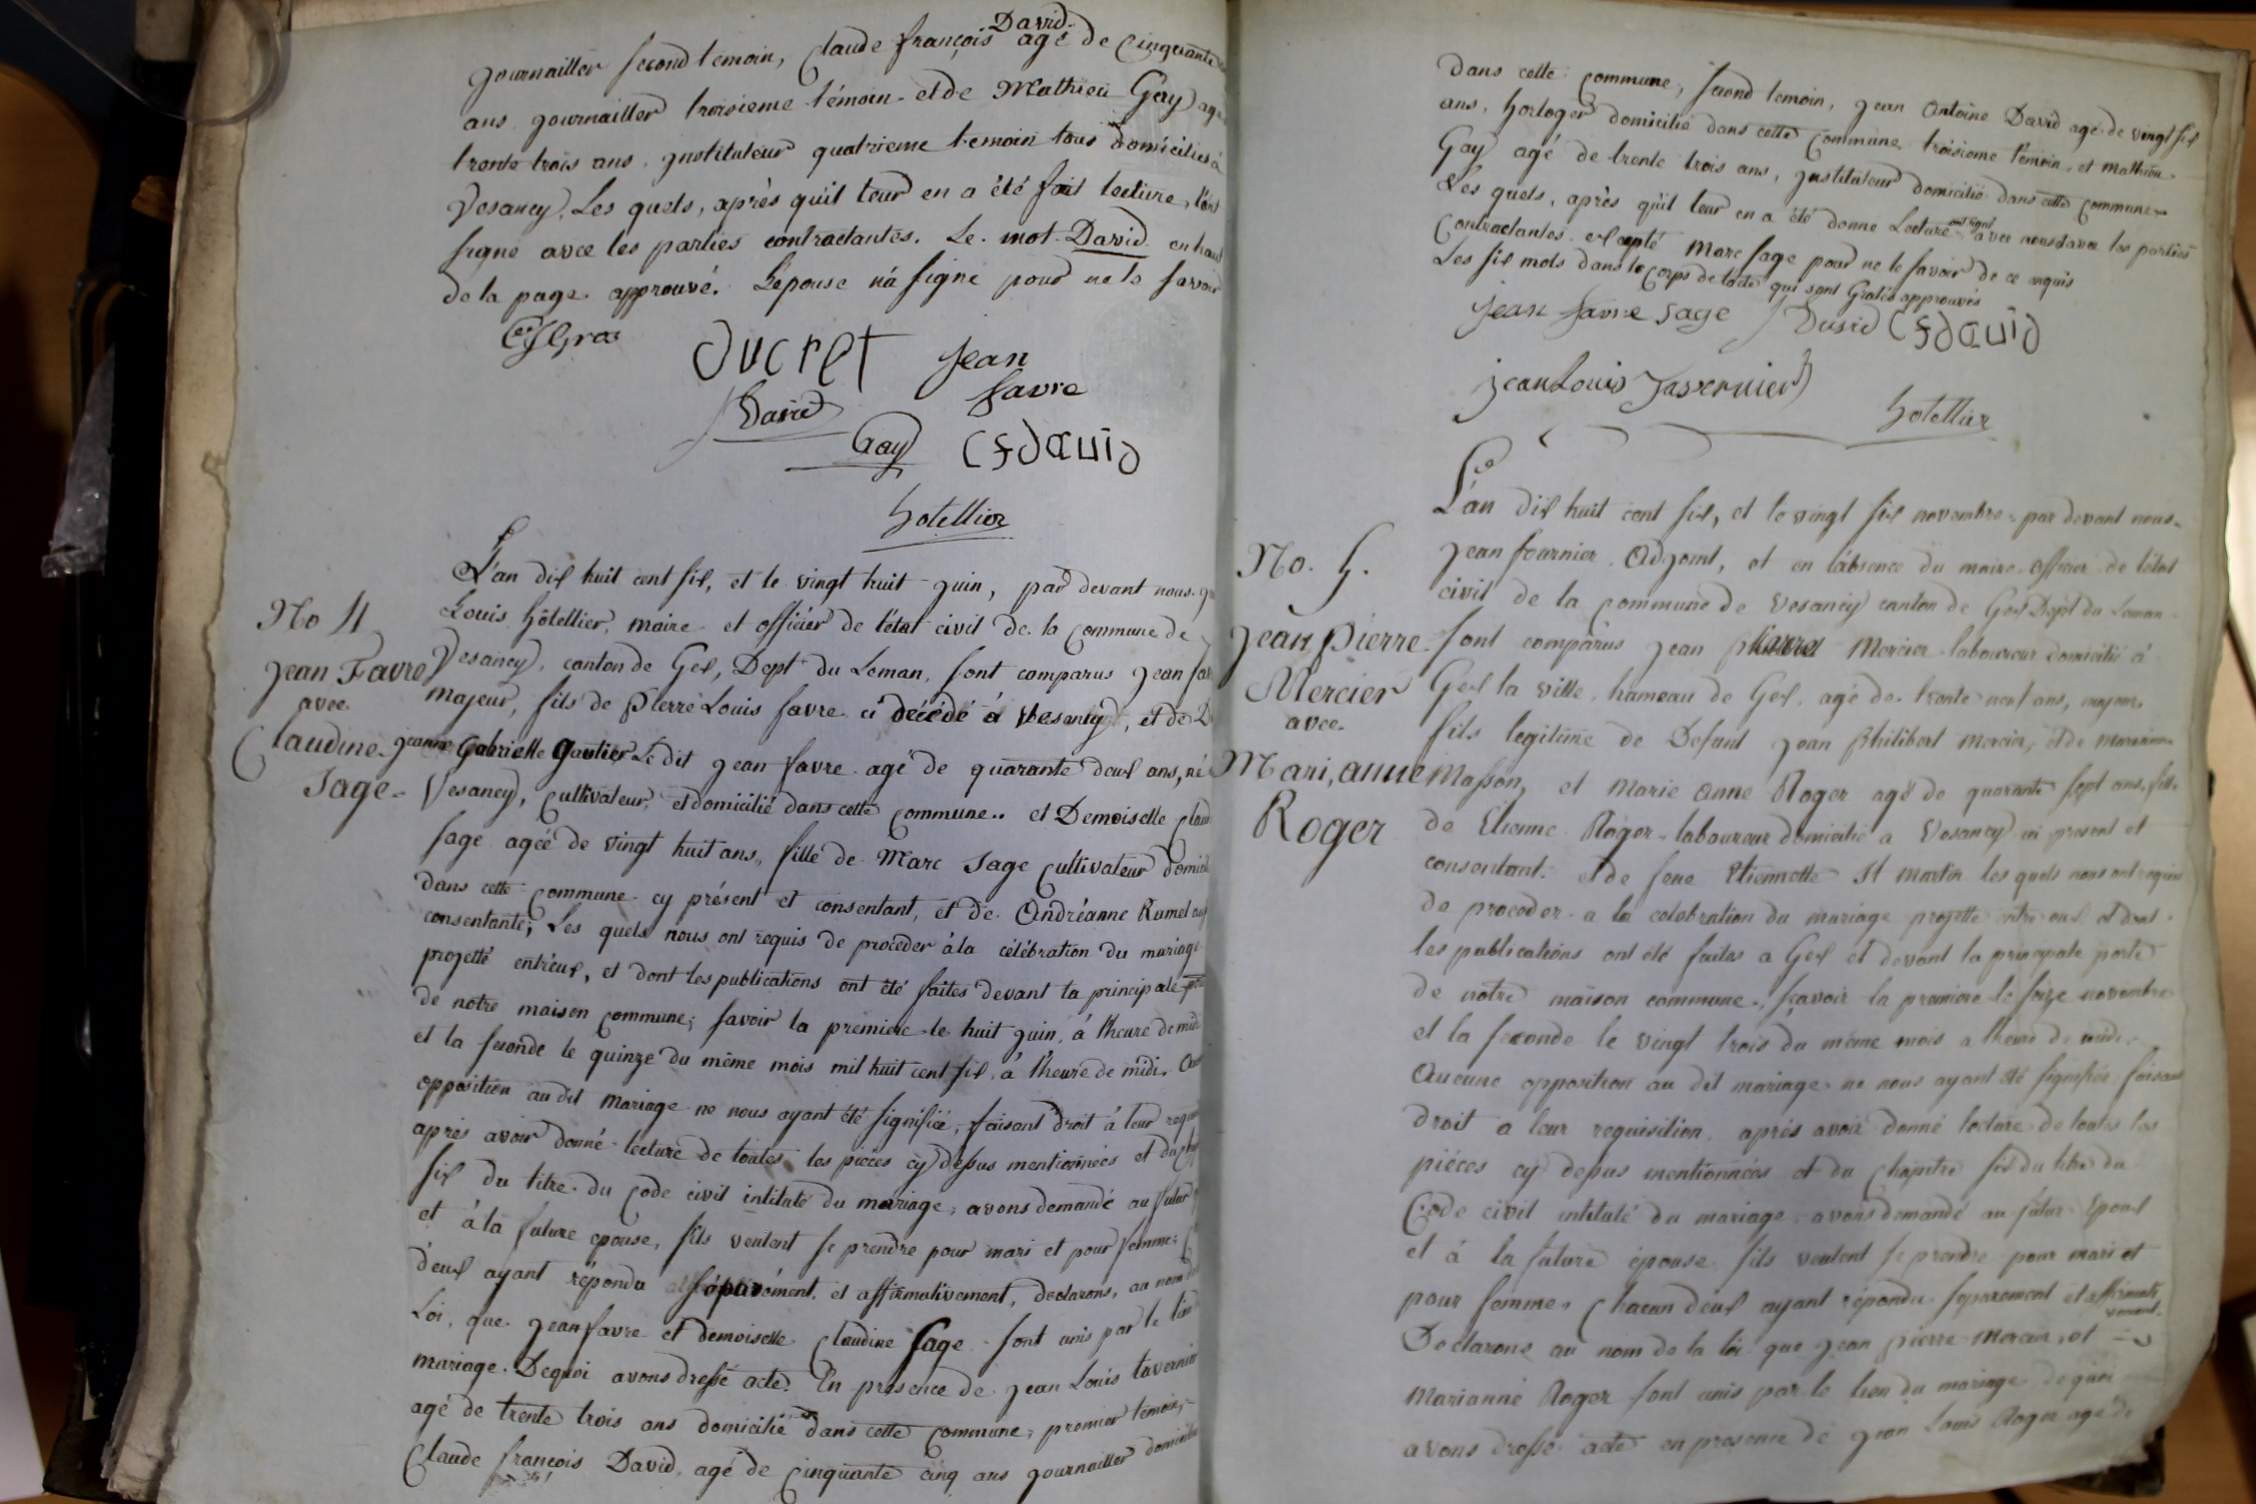 David
journaillier second témoin, Claude françois agé de Cinquante
ans journaillier troisieme témoin et de Mathieu Gay agé
trente trois ans, jnstituteur quatrieme temoin tous domiciliés à
Vesancy. Les quels, après qu'il leur en a été fait lecture, l'ont
signé avec les parties contractantes. Le mot David en haut
de la page approuvé. L'épouse n'a signé pour ne le savoir
Gros
Ducret Jean
favre
David
Gay CfDavid
hotellier
L'an dix huit cent six, et le vingt huit juin, par devant nous
No 4
Louis hôtellier, maire et officier de l'état civil de la Commune de
Jean Favre
Vesancy, canton de Gex, Dept du Leman, sont comparus Jean
avec
majeur, fils de Pierre Louis favre ci décédé à Vesancy, et de
Claudine
jeanne Gabrielle Gautier Le dit jean favre agé de quarante deux ans, né
Sage
Vesancy, Cultivateur, et domicilié dans cette commune.. et Demoiselle
sage agéé de vingt huit ans, fille de Marc Sage Cultivateur
dans cette Commune cy présent et consentant, et de Andréanne Rumel
consentante; Les quels nous ont requis de procéder à la célébration du mariage
projetté entr'eux, et dont les publications ont été faites devant la principale
de notre maison Commune; savoir la premiere le huit juin, à l'heure de midi
et la seconde le quinze du même mois mil huit cent six, à l'heure de midi.
opposition au dit mariage ne nous ayant été signifiée, faisant droit à leur
après avoir donné lecture de toutes les pièces cy dessus mentionnées et du
six du titre du Code civil intitulé du mariage, avons demandé au futur
et à la future epouse, s'ils veulent se prendre pour mari et pour femme
d'eux ayant répondu séparément, et affirmativement, declarons, au nom
Loi, que jean favre et demoiselle Claudine Sage sont unis par le lien
mariage. Dequoi avons dressé acte. En présence de jean Louis tavernier
agé de trente trois ans domicilié dans cette Commune, premier temoin,
Claude françois David, agé de Cinquante cinq ans journaillier domicilié
dans cette Commune, second temoin, jean Antoine David agé de vingt six
ans, horloger domicilié dans cette Commune troisieme témoin, et mathieu
Gay agé de trente trois ans, jnstituteur domicilié dans cette Commune
Les quels, après qu'il leur en a été donné Lecture ont signé avec les parties
Contractantes excepté Marc Sage pour ne le savoir de ce requis
Les six mots dans le corps de l'acte qui sont Gratés approuvés
jean favre sage David CfDavid
jean Louis Tavernier
hotellier
L'an dix huit cent six, et le vingt six novembre par devant nous
No. 5.
jean fournier Adjoint, et en l'absence du maire officier de l'état
civil de la Commune de Vesancy canton de Gex Dept du Leman
Jean Pierre
sont comparus jean pierre Mercier laboureur domicilié à
Mercier
Gex la ville, hameau de Gex, agé de trente neuf ans, majeur,
avec
fils legitime de Defunt jean philibert mercier, et de marianne
Mari, anne
Masson, et Marie Anne Roger agé de quarante sept ans, fille
Roger
de Etienne Roger laboureur domicilié a Vesancy ci present et
consentant. et de feue Etiennette St martin les quels nous ont requis
de proceder a la celebration du mariage projetté entre eux et dont
les publications ont été faites a Gex et devant la principale porte
de notre maison commune, sçavoir la premiere le seize novembre
et la seconde le vingt trois du même mois a l'heure de midi.
Aucune opposition au dit mariage ne nous ayant été signifiée faisant
droit a leur requisition, après avoir donné lecture de toutes les
piéces cy dessus mentionnées et du Chapitre six du titre du
Code civil intitulé du mariage, avons demandé au futur époux
et à la future épouse s'ils veulent se prendre pour mari et
pour femme, Chacun d'eux ayant répondu séparement et affirmati
vement.
Declarons au nom de la loi que jean pierre mercier, et
Marianne Roger sont unis par le lien du mariage de quoi
avons dressé acte en presence de jean Louis Roger agé de